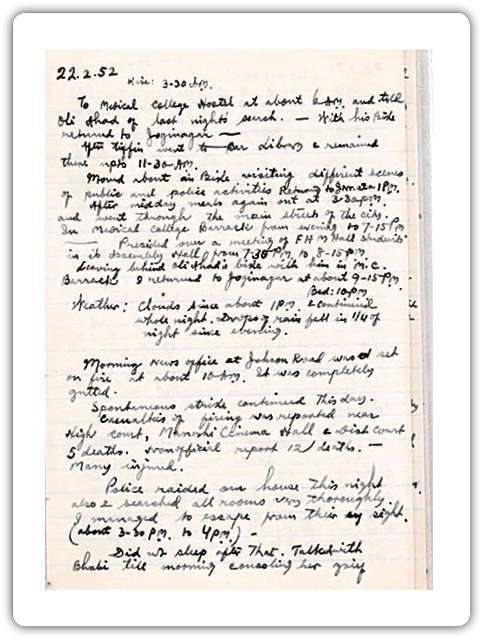 22.2.52
Rise: 3-30 AM.
To Medical College Hostel at about 6 AM. and told
Oli Ahad of last night's search. — With his Bike
returned to Joginagar —
After tiffin went to Bar Library & remained
there upto 11-30-AM.
Moved about in Bike visiting different scenes
of public and police activities 1 PM.
After midday meals again out at 3-30 pm.
and went through the main streets of the city.
In Medical College Barrack from evening to 7-15 PM
Presided over a meeting of F.H.M. Hall students
in its Assembly Hall from 7-30 P.M. to 8-15 pm
Leaving behind Oli Ahad's bike with him in M.C.
Barrack I returned to Joginagar at about 9-15 PM.
Bed: 10 PM
Weather: Clouds since about 1 PM & continued
whole night. Drops of rain fell in 1/4 of
night since evening.
Morning News office at Johnson Road was set
on fire at about 10 AM. It was completely
gutted.
Spontaneous strike continued this day.
Casualties of firing was reported near
High Court, Manoshi Cinema Hall & Dist Court
5 deaths. Unofficial report 12 deaths. —
Many injured.
Police raided our house this night
also & searched all rooms very thoroughly.
I managed to escape from their sight.
(about 3-30 P.M. to 4 PM.) -
Did not sleep after that. Talked with
Bhabi till morning consoling her grief